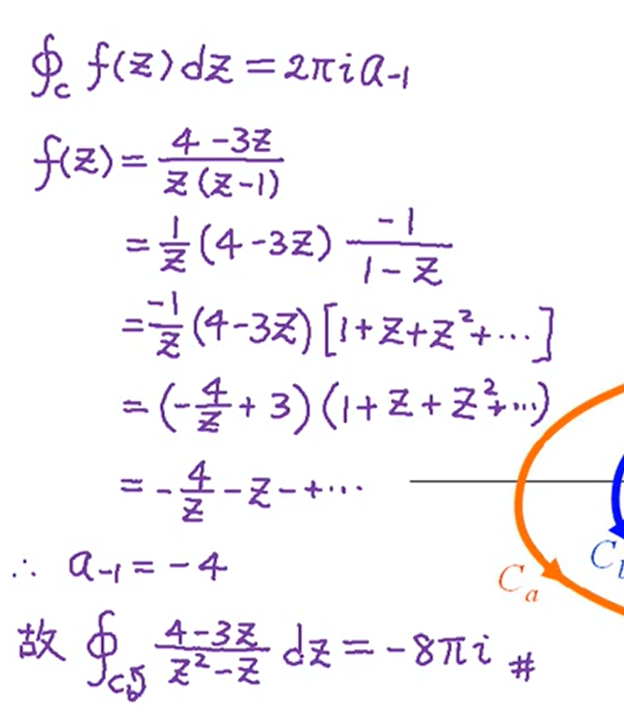 ∮_c f(z) dz = 2πi a₋₁
f(z) = (4-3z)/(z(z-1))
= 1/z (4-3z) (-1)/(1-z)
= -1/z (4-3z) [1+z+z²+⋯]
= (-4/z + 3)(1+z+z²+⋯)
= -4/z - z - +⋯
∴ a₋₁ = -4
故 ∮_{C_b↺} (4-3z)/(z²-z) dz = -8πi #
C_a